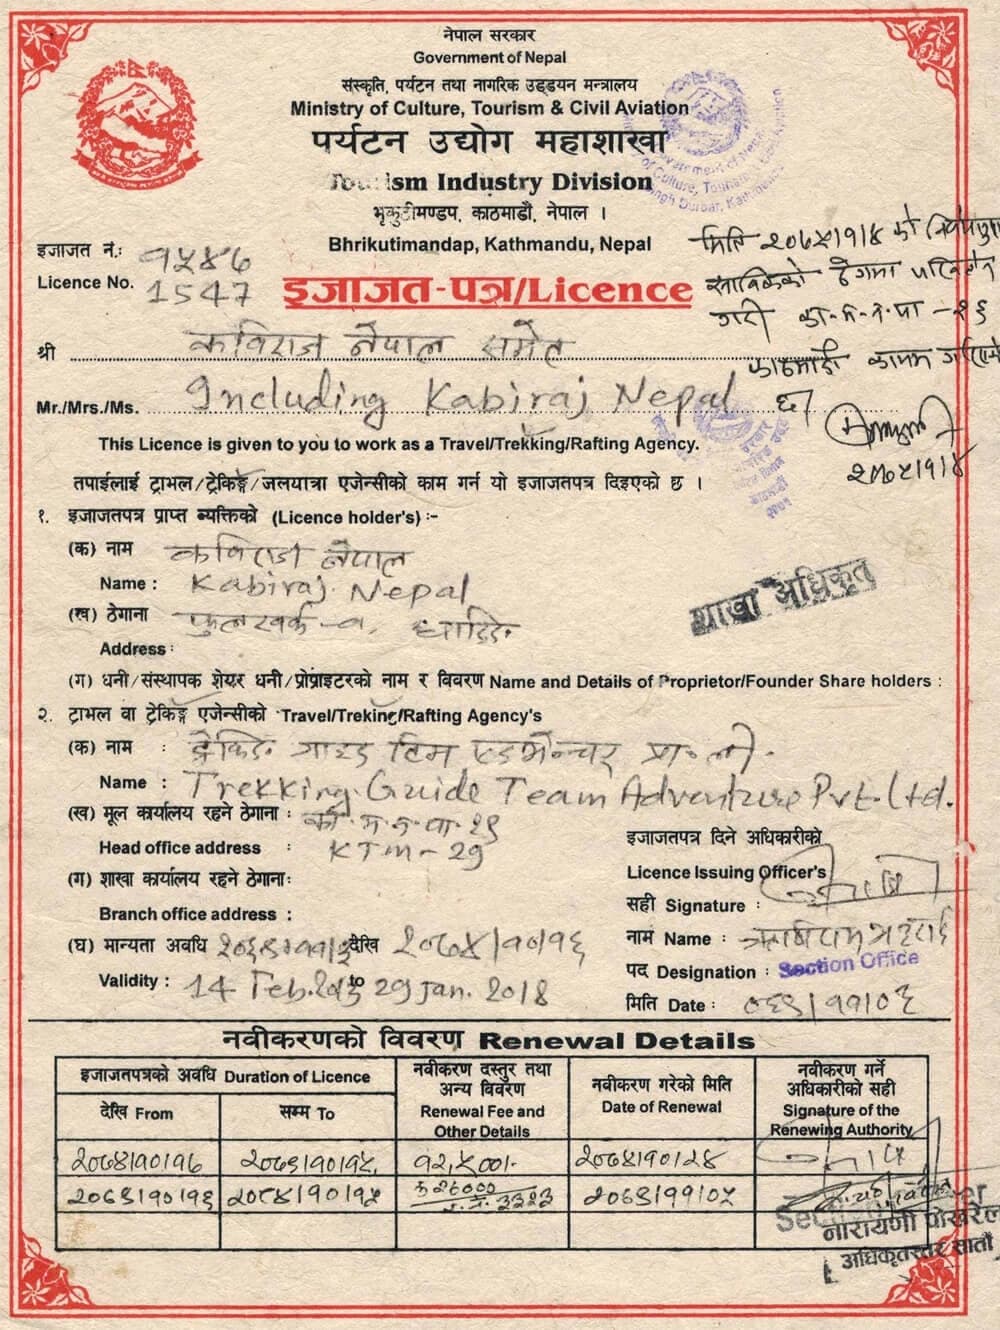 नेपाल सरकार
Government of Nepal
संस्कृति, पर्यटन तथा नागरिक उड्डयन मन्त्रालय
Ministry of Culture, Tourism & Civil Aviation
पर्यटन उद्योग महाशाखा
Tourism Industry Division
भृकुटीमण्डप, काठमाडौं, नेपाल ।
Bhrikutimandap, Kathmandu, Nepal
इजाजत नं.: १५४७
Licence No. 1547
इजाजत-पत्र/Licence
श्री कविराज नेपाल समेत
Mr./Mrs./Ms. Including Kabiraj Nepal
This Licence is given to you to work as a Travel/Trekking/Rafting Agency.
तपाईलाई ट्राभल/ट्रेकिङ्ग/जलयात्रा एजेन्सीको काम गर्न यो इजाजतपत्र दिइएको छ ।
मिति २०७५।१।४ को
साविकको ठेगाना
गरी का.म.न.पा - २६
काठमाडौं कायम गरिएको
छ।
२०७५।१।४
१. इजाजतपत्र प्राप्त व्यक्तिको (Licence holder's) :-
(क) नाम कविराज नेपाल
Name : Kabiraj Nepal
(ख) ठेगाना फुलखर्क धादिङ
Address :
शाखा अधिकृत
(ग) धनी/संस्थापक शेयर धनी/प्रोप्राइटरको नाम र विवरण Name and Details of Proprietor/Founder Share holders :
२. ट्राभल वा ट्रेकिङ्ग एजेन्सीको Travel/Treking/Rafting Agency's
(क) नाम : ट्रेकिङ गाइड टिम एडभेन्चर प्रा.ली.
Name : Trekking Guide Team Adventure Pvt. Ltd.
(ख) मूल कार्यालय रहने ठेगाना : का.म.न.पा. २९
Head office address : KTM - 29
(ग) शाखा कार्यालय रहने ठेगानाः
Branch office address :
(घ) मान्यता अवधि देखि २०७४।१०।१६
Validity : 14 Feb. to 29 Jan. 2018
इजाजतपत्र दिने अधिकारीको
Licence Issuing Officer's
सही Signature :
नाम Name :
पद Designation : Section Office
मिति Date : ०६९।११।०३
नवीकरणको विवरण Renewal Details
इजाजतपत्रको अवधि Duration of Licence
देखि From
सम्म To
नवीकरण दस्तुर तथा
अन्य विवरण
Renewal Fee and
Other Details
नवीकरण गरेको मिति
Date of Renewal
नवीकरण गर्ने
अधिकारीको सही
Signature of the
Renewing Authority
२०७४।१०।१६ २०७९।१०।१५ १२,५००।- २०७४।१०।२४
२०७९।१०।१६ २०८४।१०।१५ २६००० ३३२३ २०७९।११।०५
Section Officer
नारायणी पोखरेल
अधिकृतस्तर सातौं